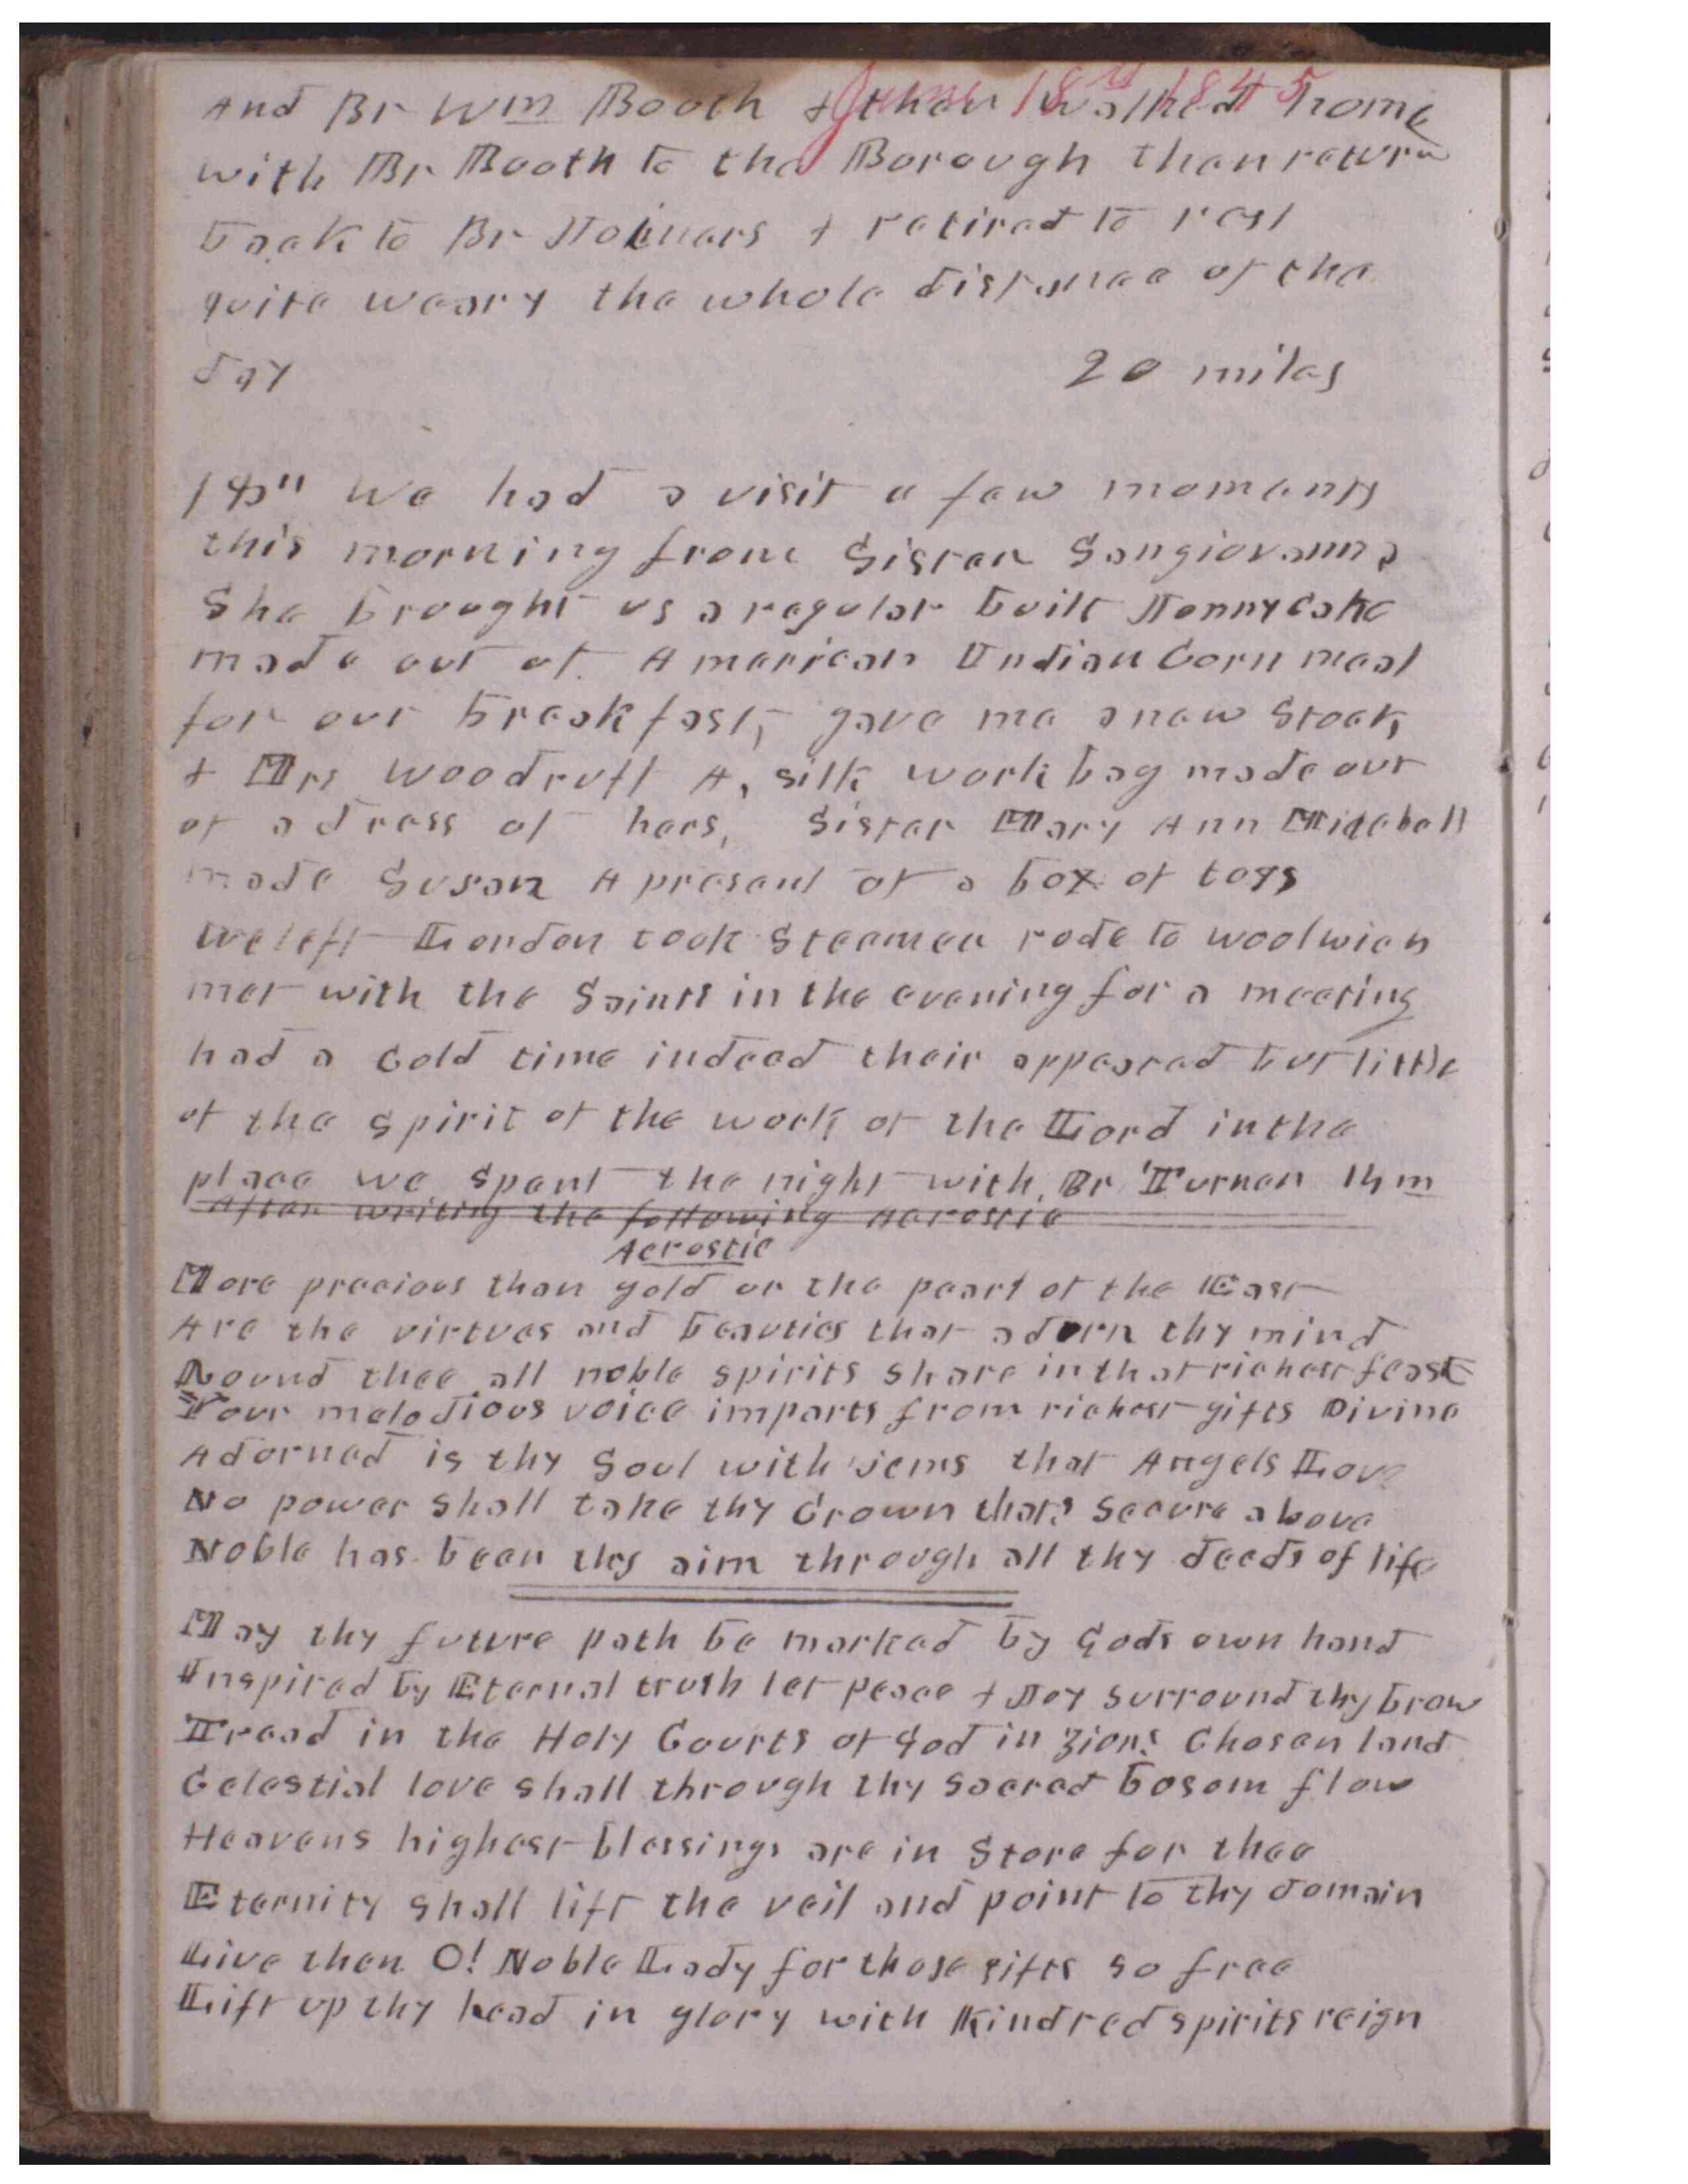 June 18th 1845
And Br Wm Booth & then walked home
with Br Booth to the Borough then return
back to Br Holmers & retired to rest
quite weary the whole distance of the
day 20 miles
18" We had a visit a few moments
this morning from Sister Sangiovanna
She brought us a regular built Jonnycake
made out of American Indian Corn meal
for our breakfast, gave me a new Stock,
& Mrs Woodruff A, silk work bag made out
of a dress of hers, Sister Mary Ann Mitchell
made Susan A present of a box of toys
We left London took Steamer rode to Woolwich
met with the Saints in the evening for a meeting
had a Cold time indeed their appeared but little
of the spirit of the work of the Lord in the
place we spent the night with, Br Turner 14 m
After writing the following Acrostic
Acrostic
More precious than gold or the pearl of the East
Are the virtues and beauties that adorn thy mind
Round thee all noble spirits share in that richest feast
Your melodious voice imparts from richest gifts Divine
Adorned is thy Soul with jems that Angels Love
No power shall take thy Crown thats Secure above
Noble has been thy aim through all thy deeds of life
May thy future path be marked by Gods own hand
Inspired by Eternal truth let peace & Joy surround thy brow
Tread in the Holy Courts of God in Zions Chosen land
Celestial love shall through thy sacred bosom flow
Heavens highest blessings are in Store for thee
Eternity shall lift the veil and point to thy domain
Live then O! Noble Lady for those gifts so free
Lift up thy head in glory with Kindred spirits reign